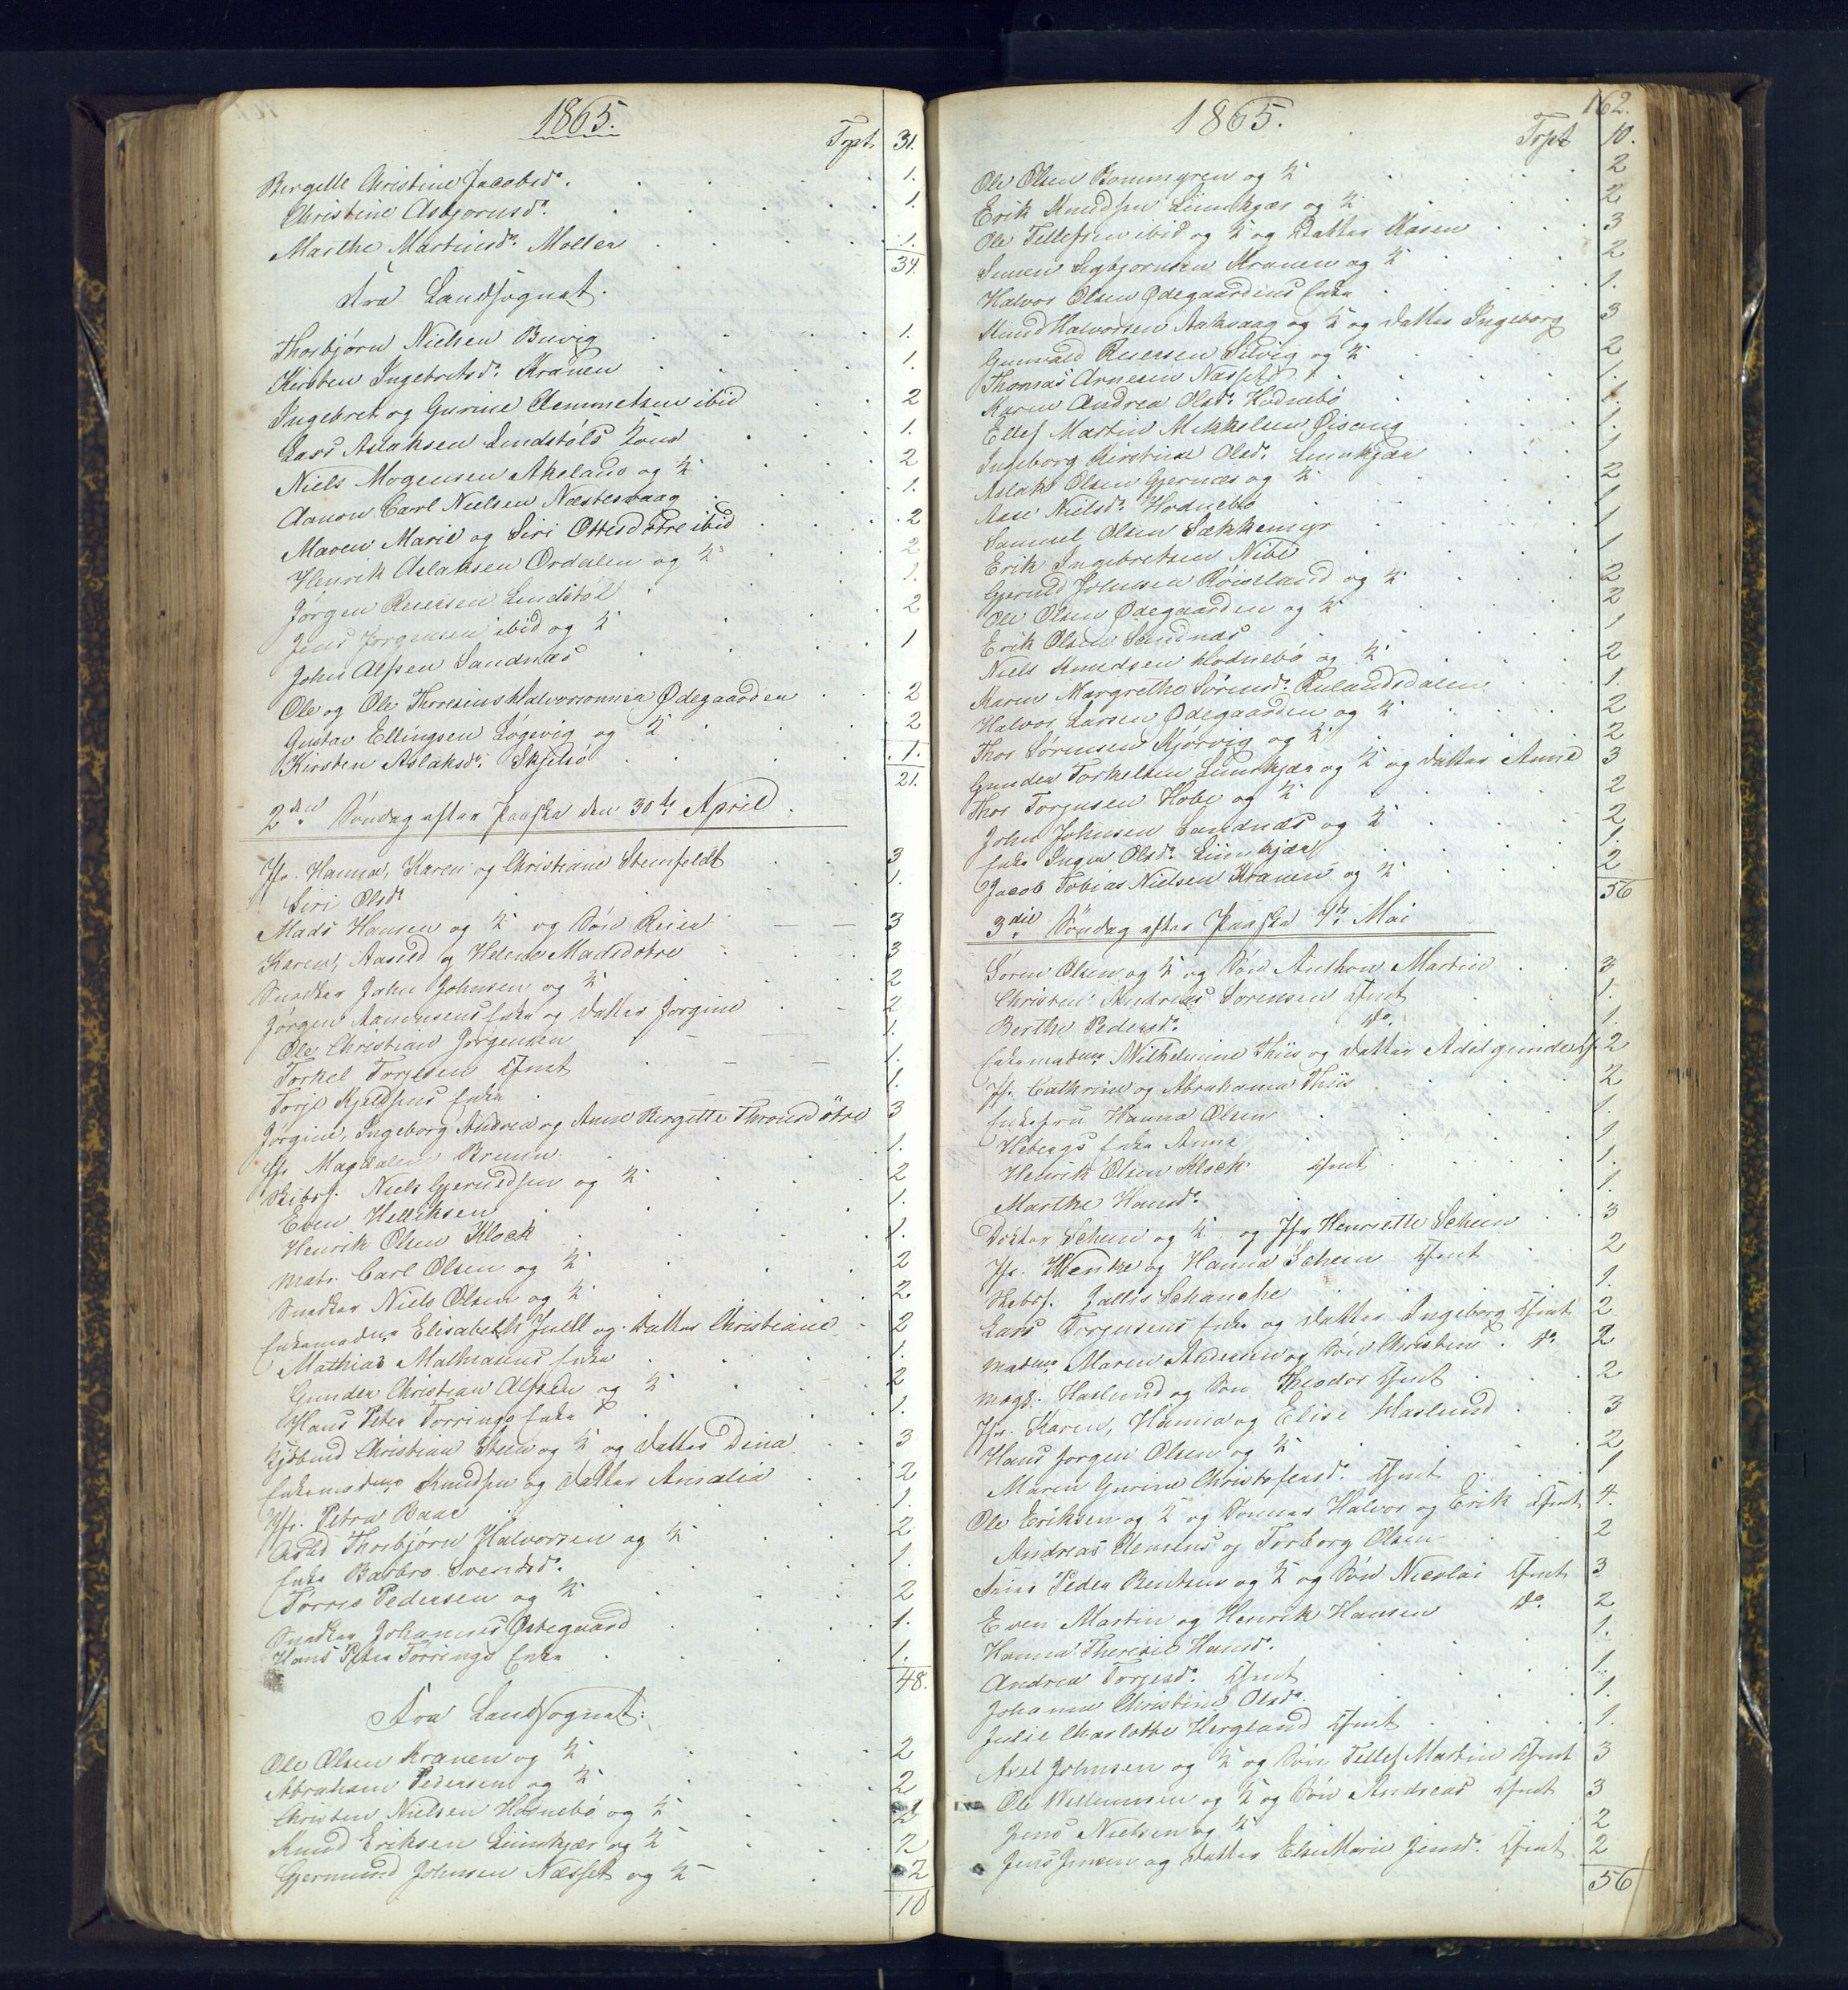 1865.
Trpt. 31.
Bergitte Christine Jacobsd. 1.
Christine Asbjørnsd. 1.
Marthe Martinsd. Møller 1.
34.
Fra Landsognet.
Thorbjørn Nielsen Buvig 1.
Kirsten Ingebretsd. Kranen 1.
Ingebret og Gurine Clemmetsen ibid 2
Lars Aslaksen Lindstøls Kone 1.
Niels Mogensen Akeland og K 2
Aanon Carl Nielsen Næstesvaag 1.
Maren Marie og Siri Ottesdøtre ibid 2
Henrik Aslaksen Ordalen og K 2
Jørgen Reiersen Lindstøl 1.
Jens Jørgensen ibid og K 2
John Alfsen Sandnæs 1
Ole og Ole Thorsinus Halvorsønner Ødegaarden 2
Gustav Ellingsen Løgevig og K 2
Kirsten Aslaksd. Skjelsø 1.
21.
2den Søndag efter Paaske den 30te April
Jfr. Hanna, Karen og Christiane Steinfeldt 3
Siri Olsd. 1.
Mads Hansen og K og Søn Reier 3
Karen, Aasild og Helene Madsdøtre 3
Snedker John Johnsen og K 2
Jørgen Aanonsens Enke og Datter Jorgine 2
Ole Christian Jørgensen 1.
Torkel Torjesen Cfmt 1.
Torje Kjeldsens Enke 1.
Jørgine, Ingeborg Andrea og Anne Bergitte Thronsdøtre 3
Jfr Magdalene Bruun 1.
Skibsf. Niels Gjeruldsen og K 2
Even Helliksen 1.
Henrik Olsen Klock 1.
Mats. Carl Olsen og K 2
Snedker Niels Olsen og K 2
Enkemadme Elisabeth Juell og Datter Christiane 2
Mathias Mathiasens Enke 1.
Gunder Christian Alfsen og K 2
Hans Peter Torrings Enke 1.
Kjøbmd Christian Steen og K og Datter Dina 3
Enkemadme Knudsen og Datter Amalia 2
Jfr. Petra Baae 1.
Arbd Thorbjørn Halvorsen og K 2
Enke Barbro Svendsd. 1.
Torris Pedersen og K 2
Snedker Johannes Østegaard 1.
Hans Peter Torrings Enke 1.
48.
Fra Landsognet:
Ole Olsen Kranen og K 2
Abraham Pedersen og K 2
Christen Nielsen Hodnebø og K 2
Knud Eriksen Limkjær og K 2
Gjermund Johnsen Næsset og K 2
10
162.
1865.
Trpt 10.
Ole Olsen Bommyren og K 2
Erik Knudsen Limkjær og K 2
Ole Tellefsen ibid og K og Datter Karen 3
Simen Sigbjørnsen Kranen og K 2
Halvor Olsen Ødegaardens Enke 1.
Knud Halvorsen Aakvaag og K og Datter Ingeborg 3
Gunvald Reiersen Silvig og K 2
Thomas Arnesen Næsset 1.
Karen Andrea Olsd. Hodnebø 1.
Ellef Martin Mikkelsen Øisang 1.
Ingeborg Kirstine Olsd. Limkjær 1
Aslak Olsen Gjernæs og K 2
Aase Nielsd. Hodnebø 1
Samuel Olsen Sækkemyr 1
Erik Ingebretsen Nibe 1
Gjeruld Johnsen Røiseland og K 2
Ole Olsen Ødegaarden og K 2
Erik Olsen Sandnæs 1
Niels Knudsen Hodnebø og K 2
Karen Margrethe Sørensd. Rulandsdalen 1.
Halvor Larsen Ødegaarden og K 2
Thor Sørensen Kjørvig og K 2
Gunder Torkelsen Limkjær og K og Datter Anne 3
Thor Torgusen Hobe og K 2
John Johnsen Sandnæs og K 2
Enke Inger Olsd. Limkjær 1.
Jacob Tobias Nielsen Kranen og K 2
56
3die Søndag efter Paaske 7de Mai
Søren Olsen og K og Søn Anthon Martin 3
Christen Andreas Sørensen Cfmt 1.
Berthe Pedersd. Do 1.
Enkemadme Wilhelmine Thiis og Datter Adelgunde Cf. 2
Jfr. Cathrine og Abrahama Thiis 2
Enkefru Hanna Olsen 1.
Hebergs Enke Anne 1
Henrik Olsen Klock Cfmt 1.
Marthe Hansd. 1.
Doktor Scheen og K og Jfr Henriette Scheen 3
Jfr. Wenke og Hanna Scheen Cfmt 2
Skibsf. Jallis Schanche 1.
Lars Torgusens Enke og Datter Ingeborg Cfmt 2
Madme Maren Andersen og Søn Christen Do 2
Mægl. Haslund og Søn Theodor Cfmt 2
Jfr. Karen, Hanna og Elise Haslund 3
Hans Jørgen Olsen og K 2
Maren Gurine Christofersd. Cfmt 1
Ole Eriksen og K og Sønner Halvor og Erik Cfmt 4.
Andreas Clemens og Torborg Olsen 2
Peder Bentsen og K og Søn Nicolai Cfmt 3
Even Martin og Henrik Hansen Do 2
Hanna Theresie Hansd. 1.
Andrea Torjesd. Cfmt 1.
Johanne Christine Olsd. 1.
Julie Charlotte Hergland Cfmt 1.
Axel Johnsen og K og Søn Tellef Martin Cfmt 3
Ole Willumsen og K og Søn Andreas Cfmt 3
Jens Nielsen og K 2
Jens Jensen og Datter Else Marie Jensd. Cfmt 2
56